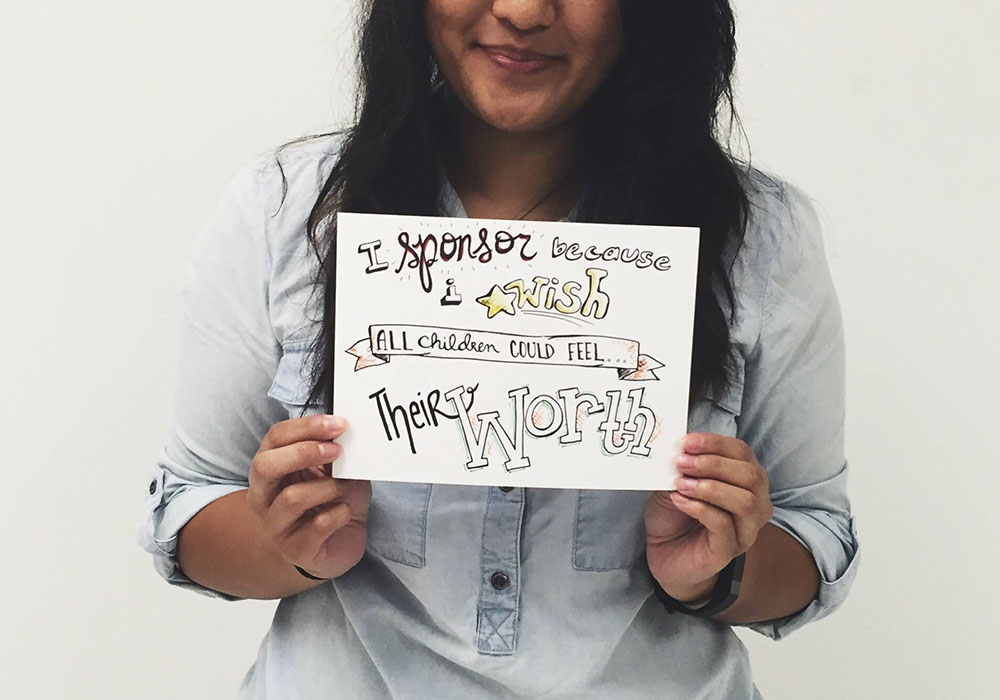 I sponsor because
i wish
ALL children COULD FEEL....
Their Worth